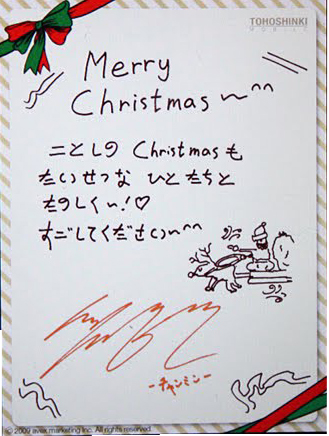 TOHOSHINKI
MOBILE
Merry
Christmas 〜^^
ことしの Christmasも
たいせつな ひとたちと
たのしく〜!♡
すごしてください〜^^
ーチャンミンー
© 2009 avex marketing Inc. All rights reserved.